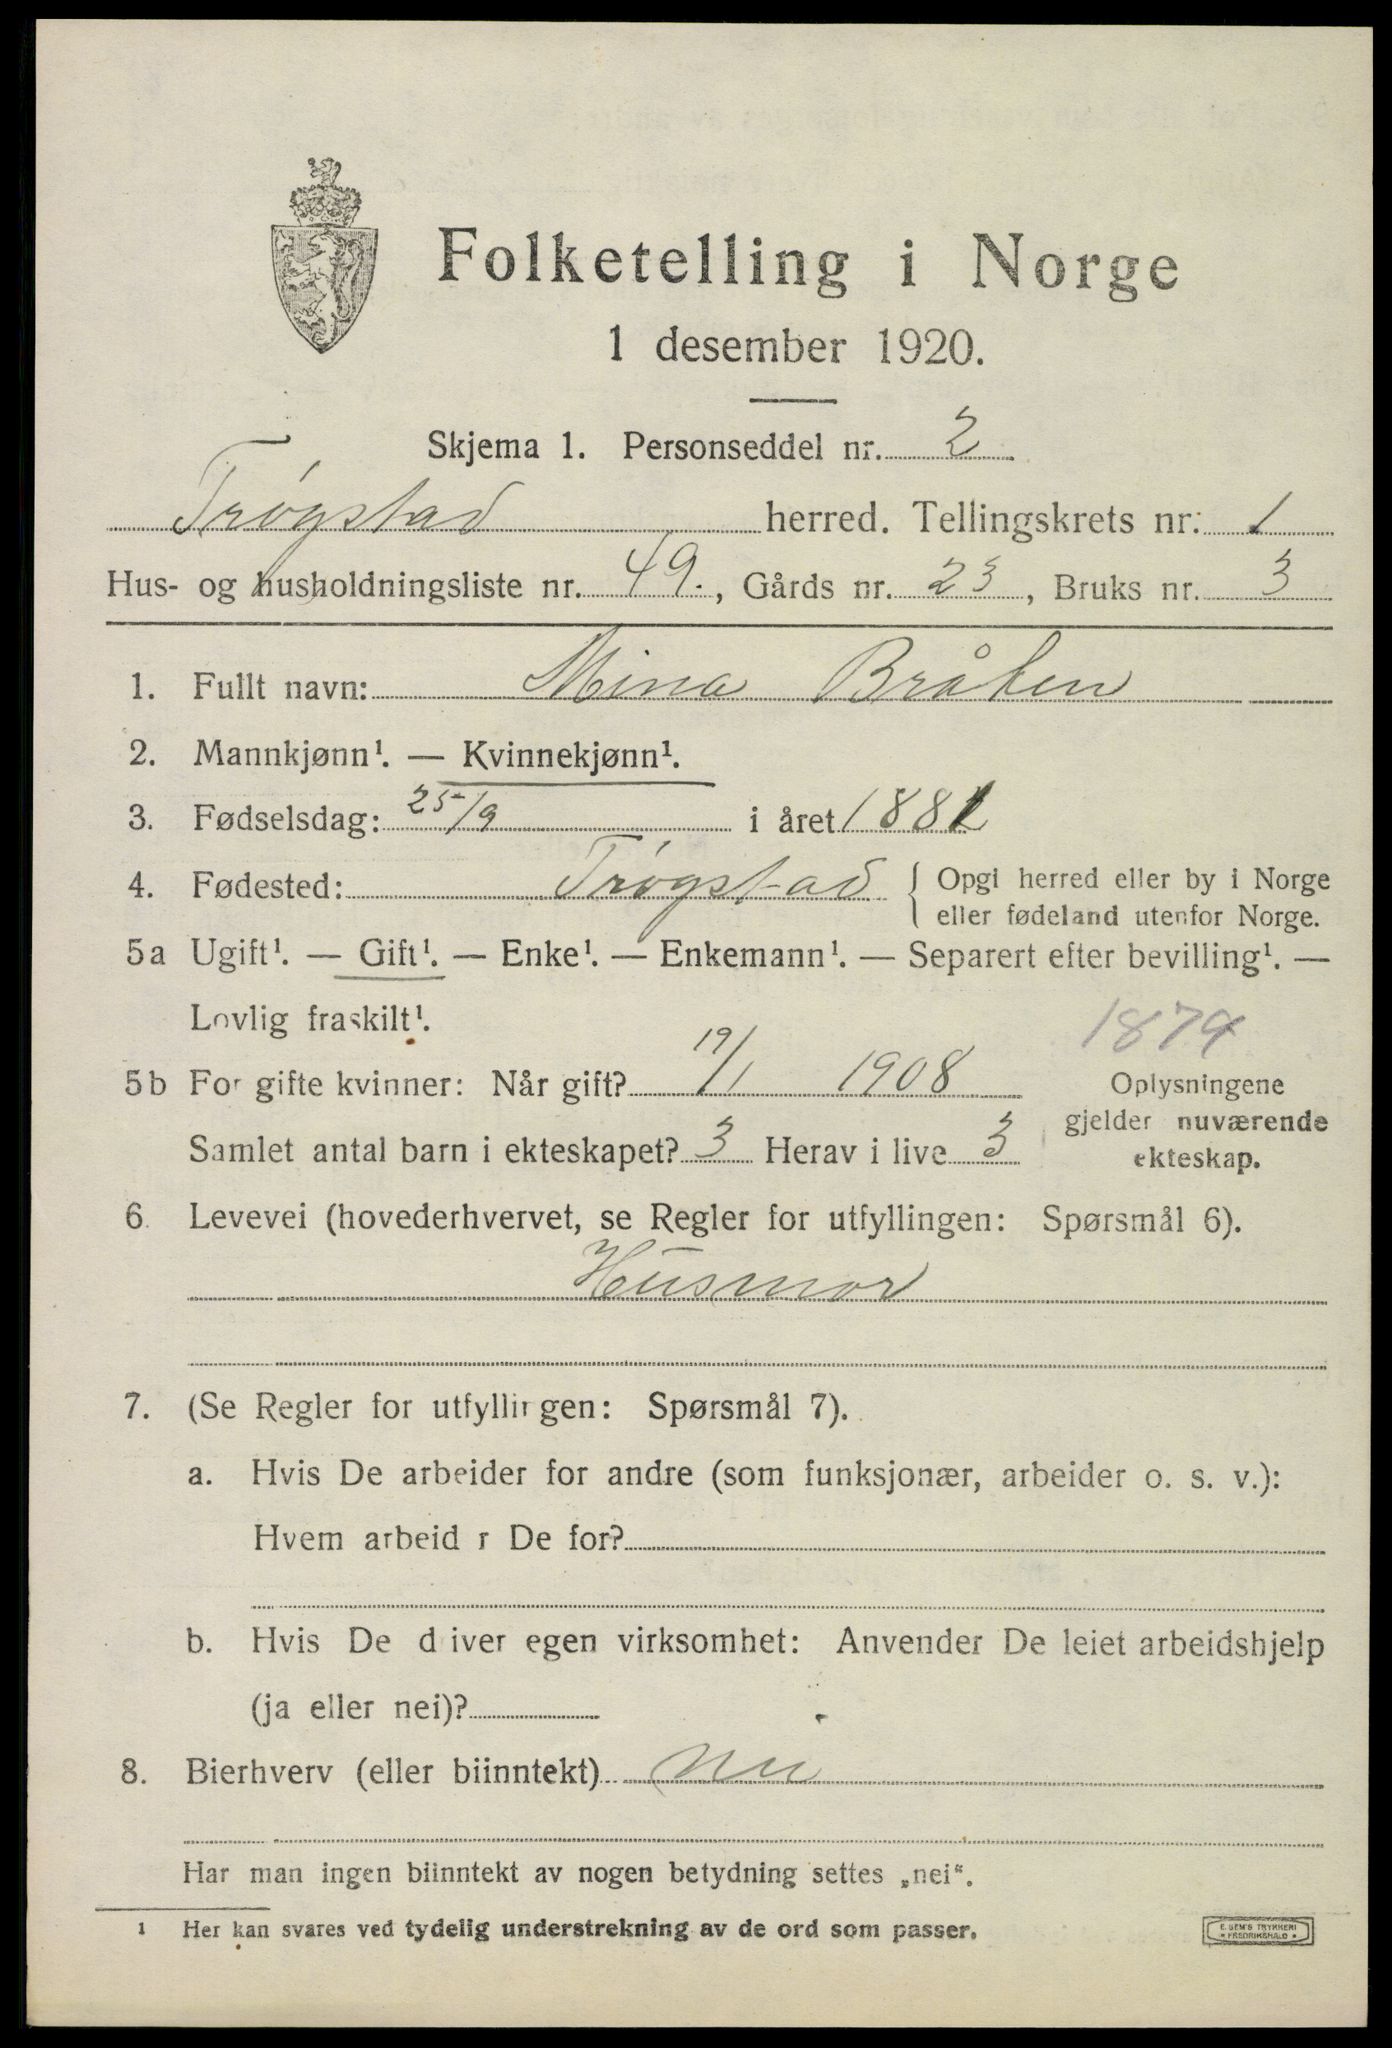 Folketelling i Norge
1 desember 1920.
Skjema 1. Personseddel nr. 2
Trøgstad herred. Tellingskrets nr. 1
Hus- og husholdningsliste nr. 49., Gårds nr. 23, Bruks nr. 3
1. Fullt navn: Mina Bråten
2. Mannkjønn¹. — Kvinnekjønn¹.
3. Fødselsdag: 25/9 i året
4. Fødested: Trøgstad { Opgi herred eller by i Norge
eller fødeland utenfor Norge.
5a Ugift¹. — Gift¹. — Enke¹. — Enkemann¹. — Separert efter bevilling¹. —
Lovlig fraskilt¹.
1874
5b For gifte kvinner: Når gift? 19/1 1908 Oplysningene
gjelder nuværende
Samlet antal barn i ekteskapet? 3 Herav i live 3 ekteskap.
6. Levevei (hovederhvervet, se Regler for utfyllingen: Spørsmål 6).
Husmor
7. (Se Regler for utfyllir gen: Spørsmål 7).
a. Hvis De arbeider for andre (som funksjonær, arbeider o. s. v.):
Hvem arbeid r De for?
b. Hvis De d iver egen virksomhet: Anvender De leiet arbeidshjelp
(ja eller nei)?
8. Bierhverv (eller biinntekt) nei
Har man ingen biinntekt av nogen betydning settes „nei“.
¹ Her kan svares ved tydelig understrekning av de ord som passer.
E. SEM'S TRYKKERI
* FREDRIKSHALD *